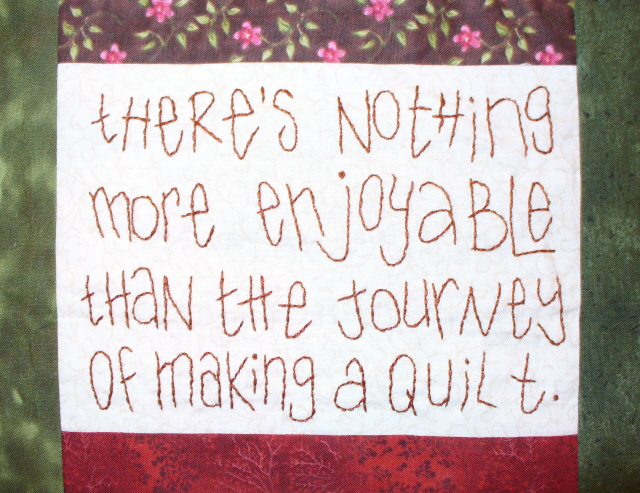 tHeRe's NotHing
more enjoyaBLe
tHaN tHe JourNey
Of making a QuiLt.